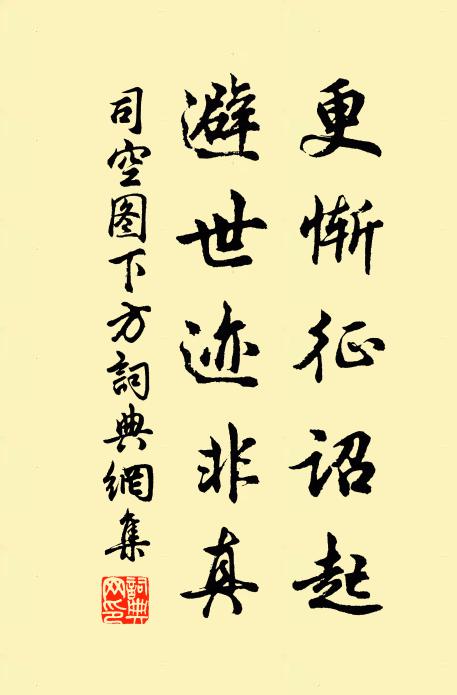 更慚征詔起
避世迹非真
司空图下方詞典網集
詞典網印